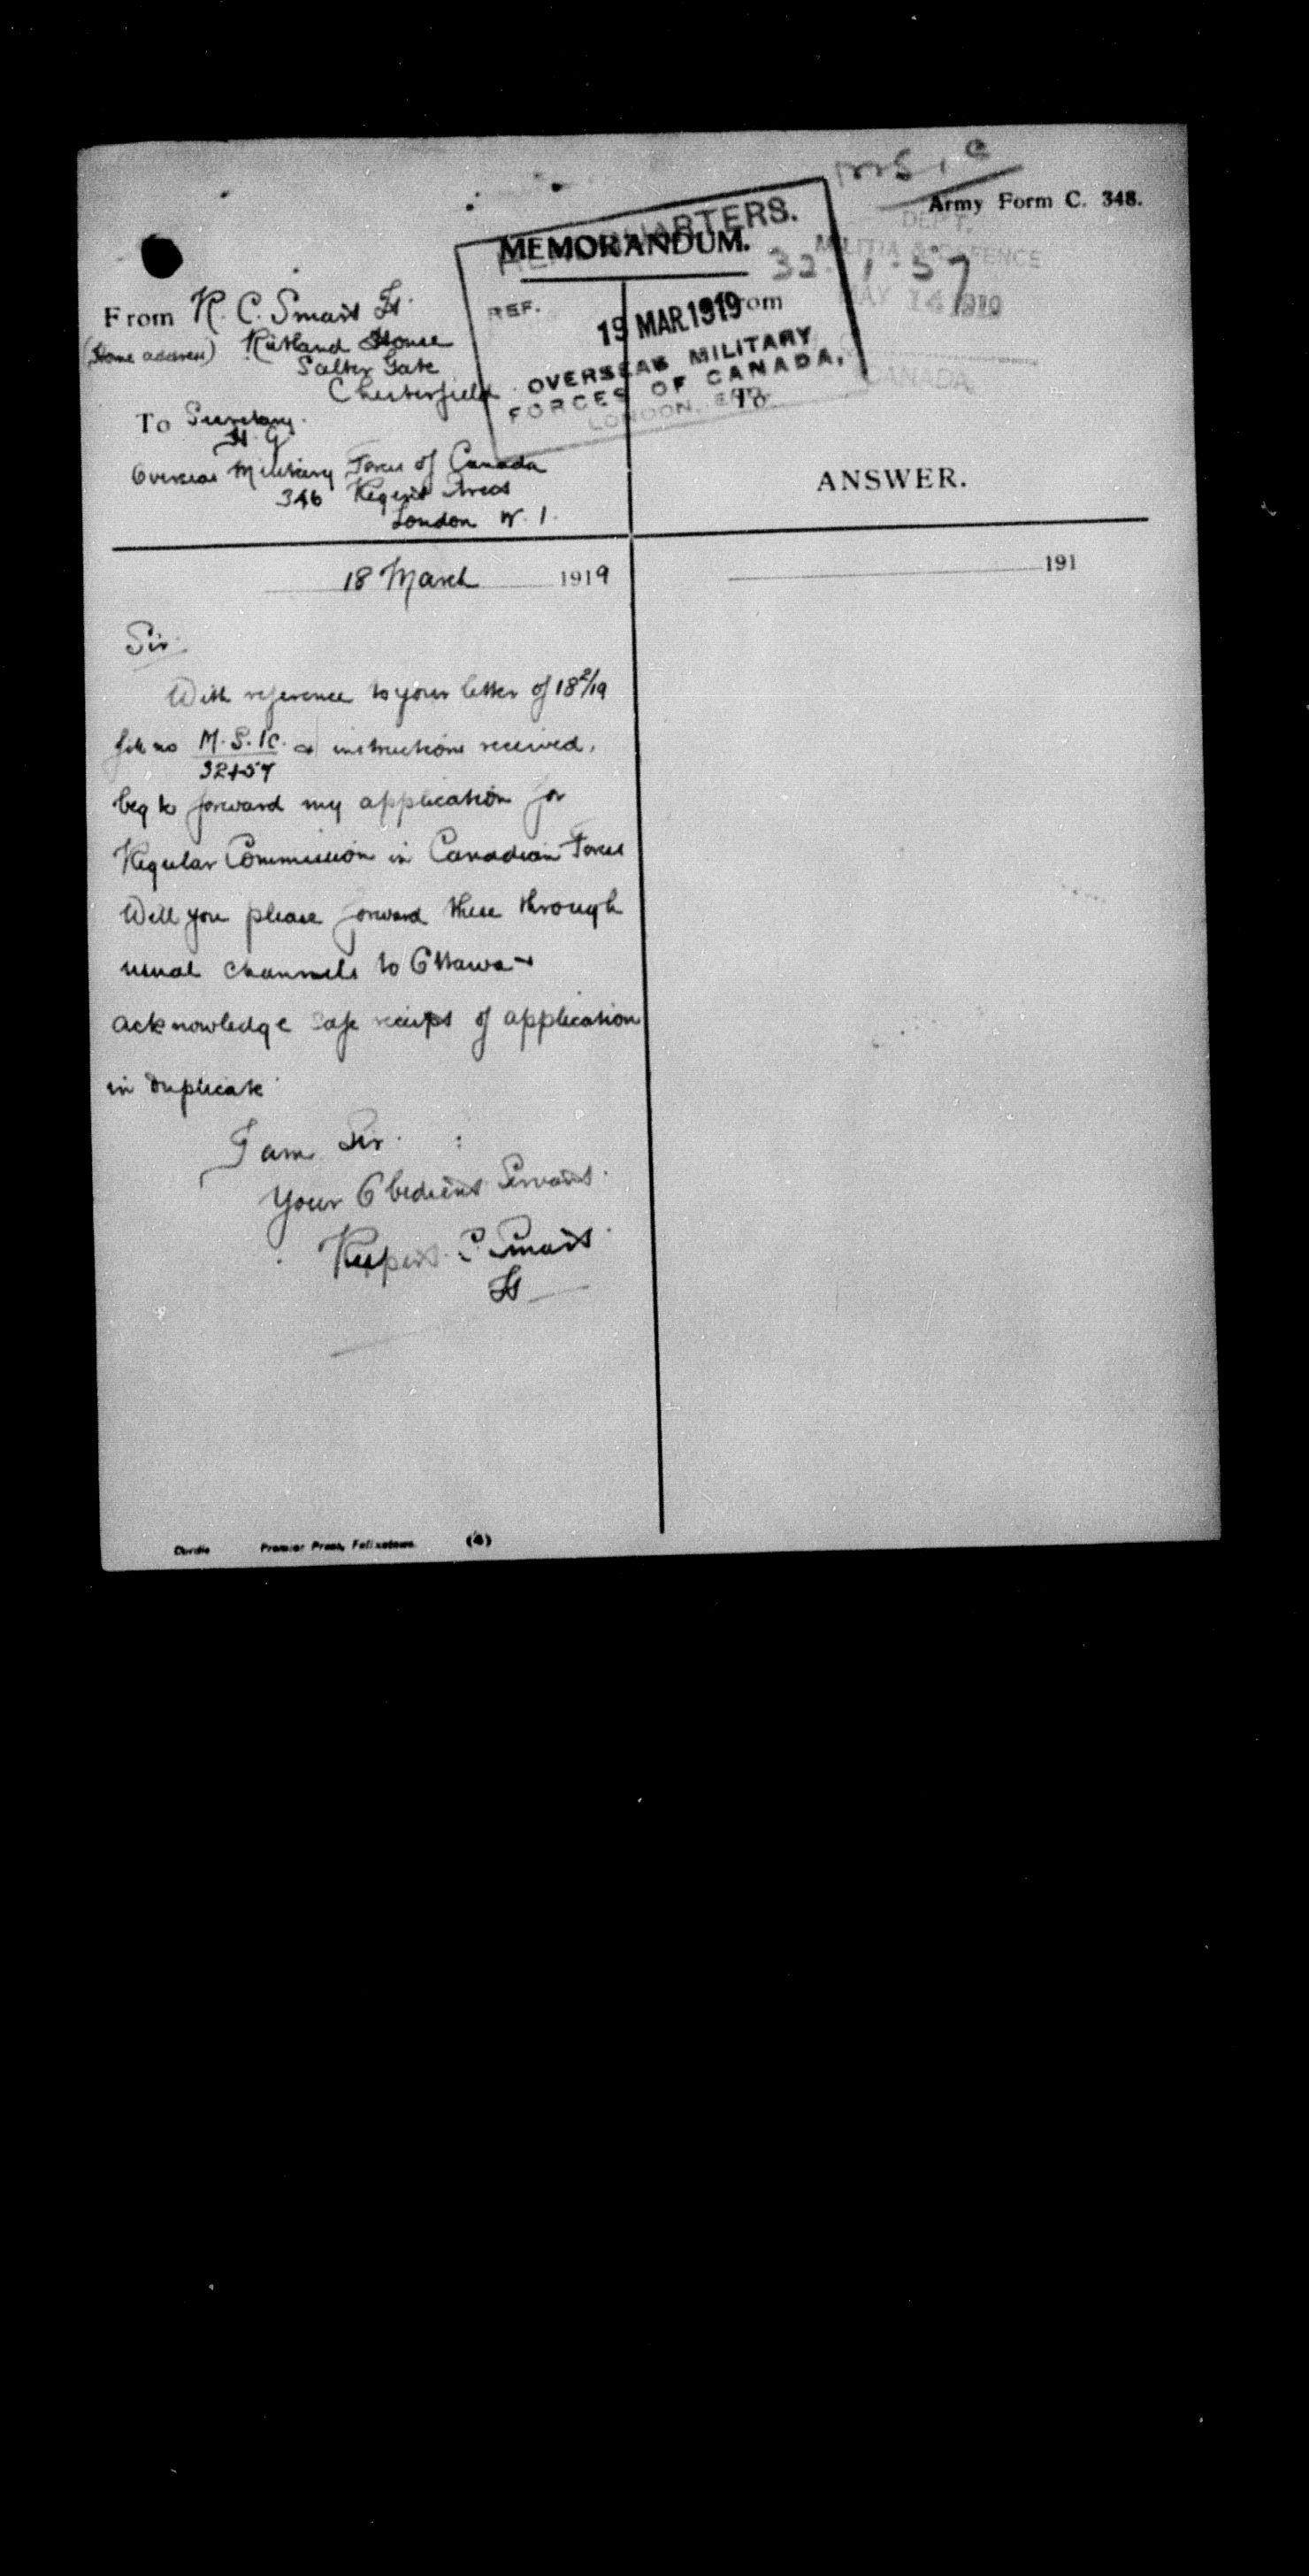 M.S.1.C
Army Form C. 348.
32-1-57
HEADQUARTERS.
MEMORANDUM.
DEPT.
MILITIA & DEFENCE
MAY 14 1919
CANADA
REF.
19 MAR. 1919
OVERSEAS MILITARY
FORCES OF CANADA,
LONDON, ENG.
From R. C. Smart Lt.
(Home address) Rutland House
Salter Gate
Chesterfield
To Secretary.
H. Q
Overseas Military Forces of Canada
346 Regent Street
London W. 1.
From
To
ANSWER.
18 March 1919
191
Sir.
With reference to your letter of 18 2/19
file no M.S.1C. & instructions received,
32-1-57
beg to forward my application for
Regular Commission in Canadian Forces
Will you please forward these through
usual channels to Ottawa &
acknowledge safe receipt of application
in duplicate
I am Sir.
Your Obedient Servant.
Rupert C Smart
Lt
Premier Press, Felixstowe. (4)